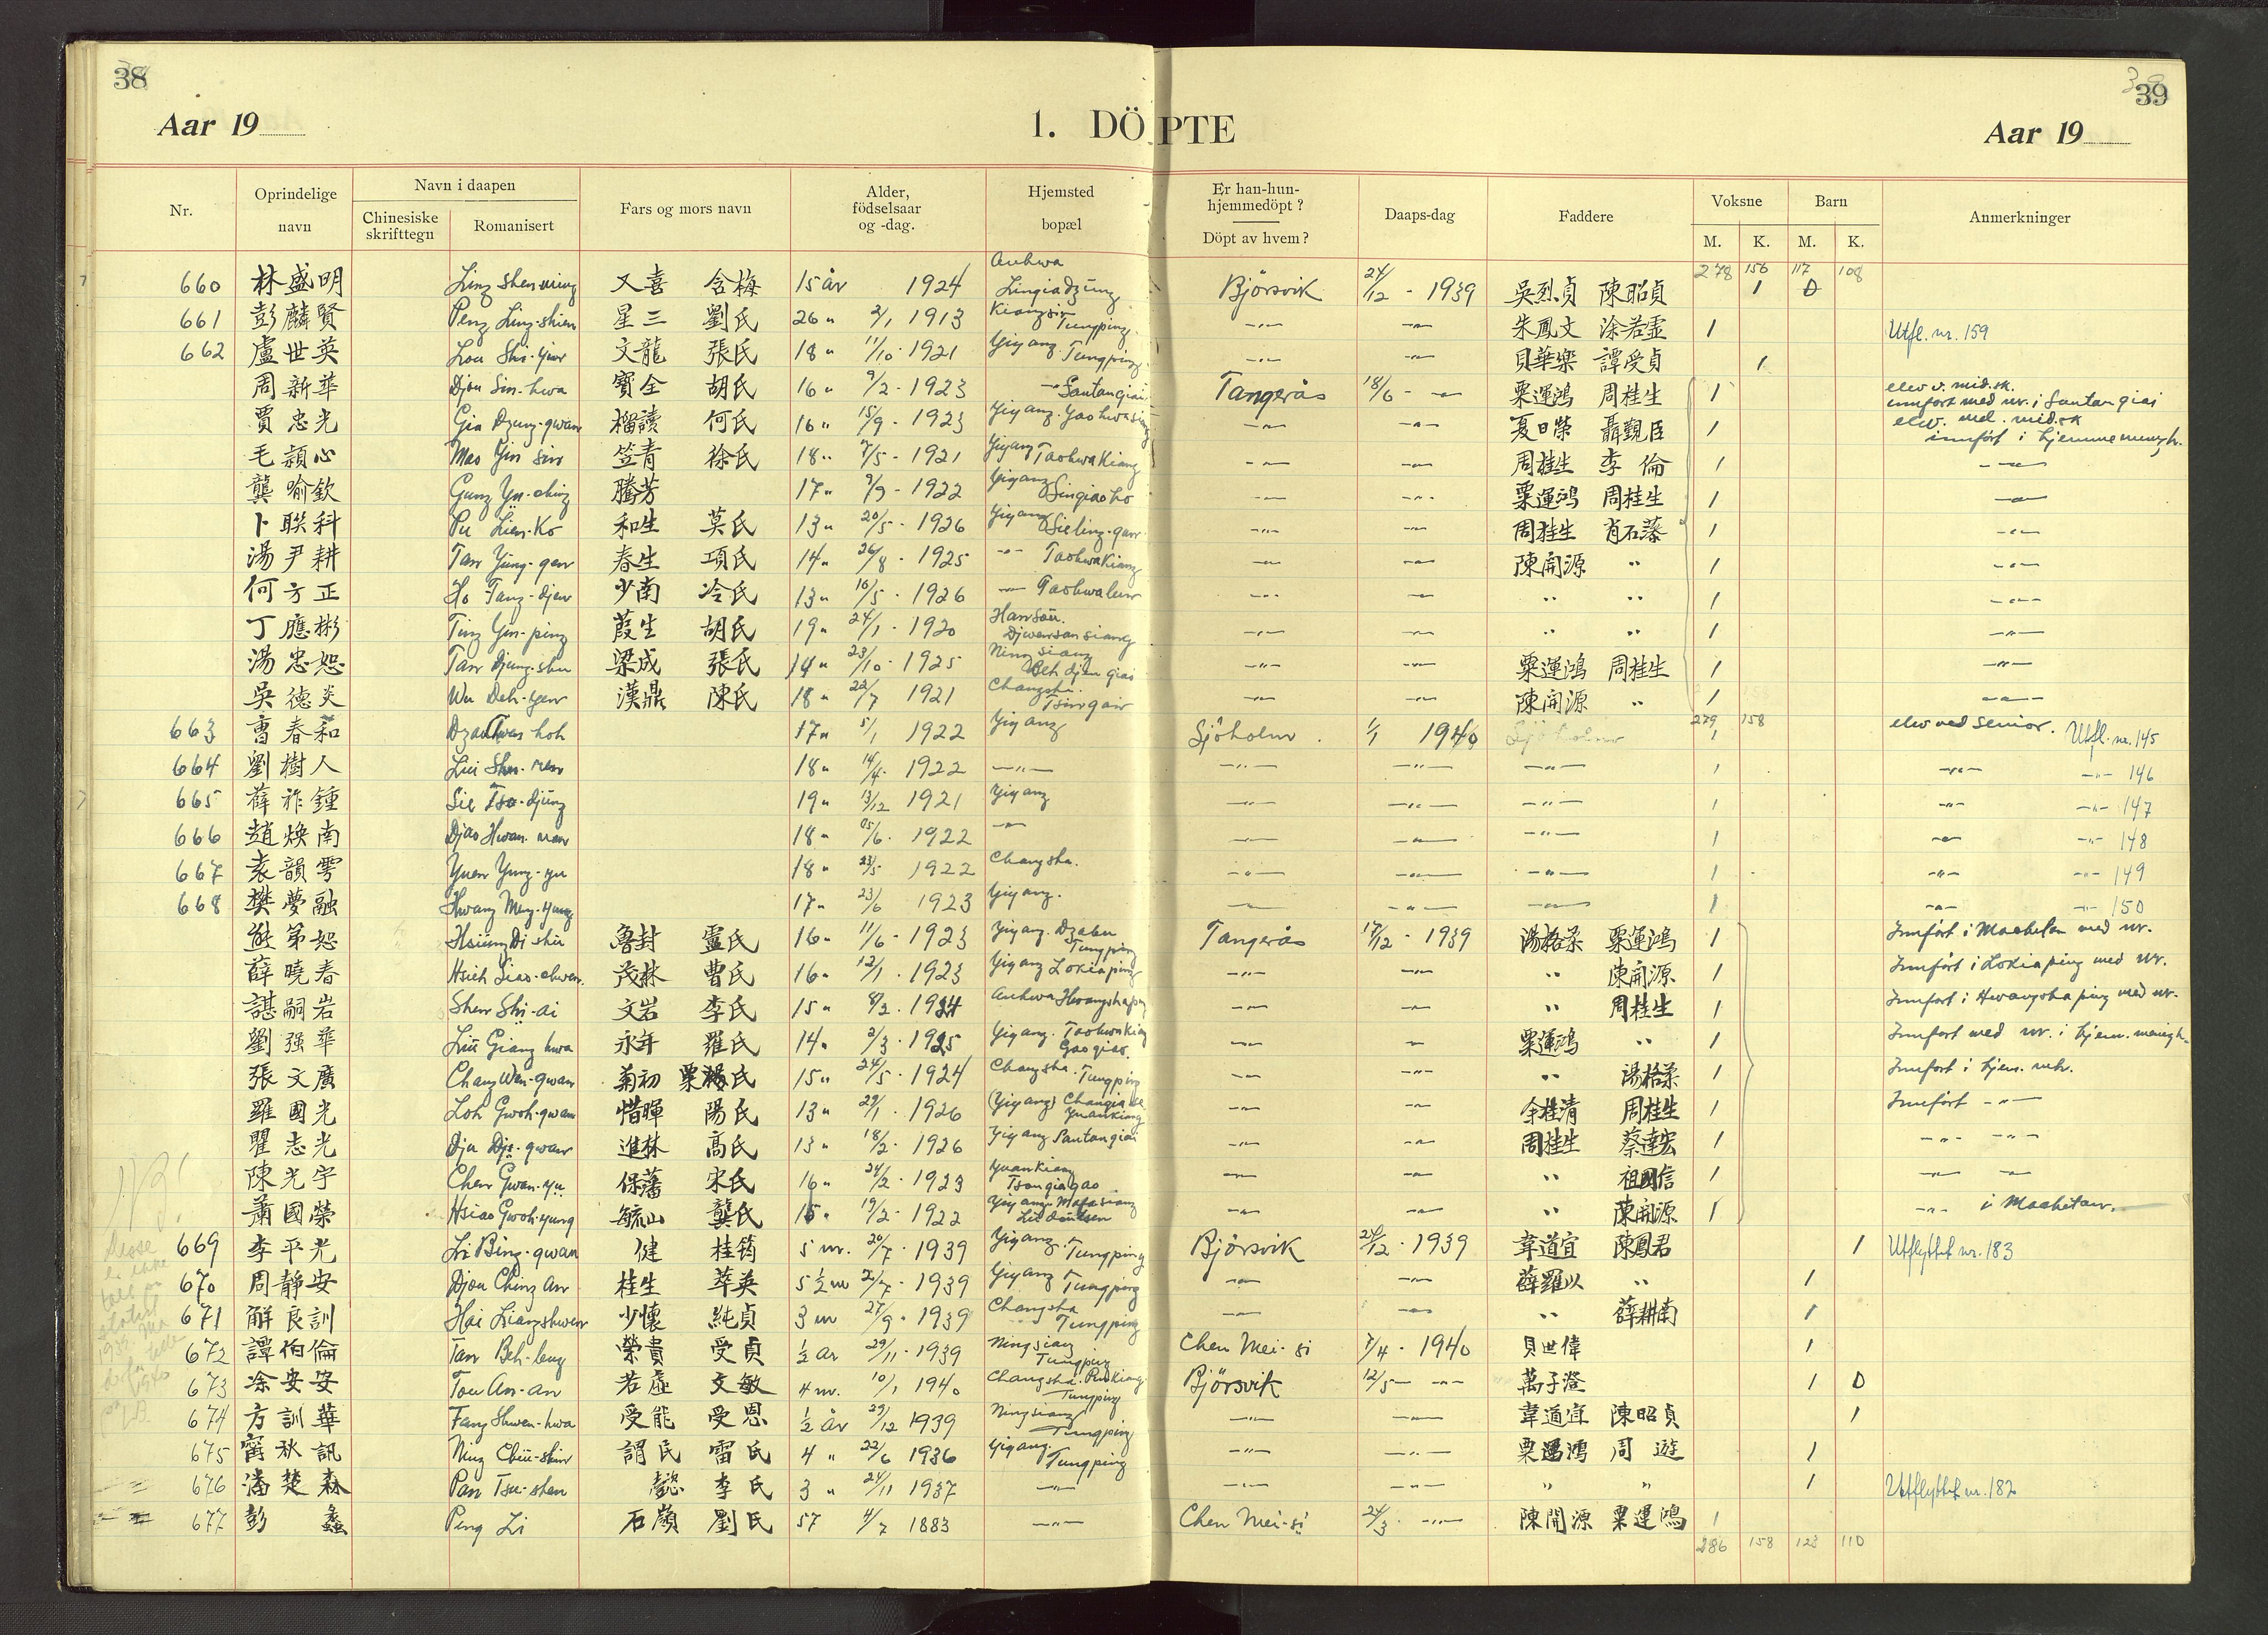 38
39
Aar 19
1. DÖPTE
Aar 19
Nr.
Oprindelige navn
Navn i daapen
Chinesiske skrifttegn
Romanisert
Fars og mors navn
Alder, födselsaar og -dag.
Hjemsted bopæl
Er han-hun-hjemmedöpt?
Döpt av hvem?
Daaps-dag
Faddere
Voksne
Barn
M. K. M. K.
Anmerkninger
278 156 117 108
660 林盛明 Ling Shen ming 又喜 含梅 15 år 1924 Anhwa Lingiadzung Björsvik 24/12 - 1939 吳烈貞 陳昭貞 1
661 彭麟賢 Peng Ling-shien 星三 劉氏 26 " 2/1 1913 Kiangsi Tungping -"- -"- 朱鳳文 涂若霊 1 Utfl. nr. 159
662 盧世英 Lou Shi-yin 文龍 張氏 18 " 11/10 - 1921 Yiyang Tungping -"- -"- 貝華樂 譚受貞 1
周新華 Djou Sin-hwa 寶全 胡氏 16 " 9/2 - 1923 -"- Santangiai Tangerås 18/6 - -"- 粟運鴻 周桂生 1 elev v. mid.sk. innfört med nr. i Santangiai
賈忠光 Gia Dzung-gwan 榴讀 何氏 16 " 15/9 - 1923 Yiyang. Yaohwasiang -"- -"- 夏日榮 聶觀臣 1 elev. ved. mid.sk innfört i hjemmemenigh.
毛頴心 Mao Yin Sin 笠青 徐氏 18 " 7/5 - 1921 Yiyang Taohwakiang -"- -"- 周桂生 李倫 1 -"-
龔喻欽 Gung Yü-ching 騰芳 17 " 9/9 - 1922 Yiyang Singiaoho -"- -"- 粟運鴻 周桂生 1 -"-
卜联科 Pu Lien-Ko 和生 莫氏 13 " 20/5 - 1926 Yiyang Sieling-gan -"- -"- 周桂生 肖石藩 1 -"-
湯尹耕 Tan Yung-gen 春生 項氏 14 " 26/8 - 1925 -"- Taohwakiang -"- -"- 陳開源 " 1 -"-
何方正 Ho Fang-djen 少南 冷氏 13 " 16/5 - 1926 -"- Taohwalun -"- -"- " " 1 -"-
丁應彬 Ting Yin-ping 葭生 胡氏 19 " 24/1 - 1920 Hansou. Djwensansiang -"- -"- " " 1 -"-
湯忠恕 Tan Djung-shu 梁成 張氏 14 " 23/10 - 1925 Ningsiang Beh djen giai -"- -"- 粟運鴻 周桂生 1 -"-
吳德炎 Wu Deh-yen 漢鼎 陳氏 18 " 22/7 1921 Changsha. Tsingan -"- -"- 陳開源 " 1 -"-
279 158
663 曹春和 Dzao Chwen hoh 17 " 5/1 1922 Yiyang Sjöholm. 1/1 1940 Sjöholm 1 elev ved Senior. Utfl. nr. 145
664 劉樹人 Liu Shu-ren 18 " 14/4 - 1922 -"- -"- -"- -"- 1 -"- -"- 146
665 薛祚鍾 Sie Tso-djung 19 " 13/12 1921 Yiyang -"- -"- -"- 1 -"- -"- 147
666 趙煥南 Djao Hwan-nan 18 " 15/6 - 1922 -"- -"- -"- -"- 1 -"- -"- 148
667 袁韻雩 Yuen Yung-yu 18 " 23/5 1922 Changsha. -"- -"- -"- 1 -"- -"- 149
668 樊夢融 Hwang Meng-yung 17 " 23/6 1923 Yiyang. -"- -"- -"- 1 -"- -"- 150
熊第恕 Hsiung Di shu 魯封 盧氏 16 " 11/6 - 1923 Yiyang. Tungping Tangerås 17/12 - 1939 湯格柔 粟運鴻 1 Innfört i Maehetan med nr.
薛曉春 Hsieh Siao-chwen. 茂林 曹氏 16 " 12/1 - 1923 Yiyang Lokiaping -"- -"- " 陳開源 1 Innfört i Lokiaping med nr.
諶嗣岩 Shen Shi-ai 文岩 李氏 15 " 8/2 - 1924 Anhwa Hwangshaping -"- -"- " 周桂生 1 Innfört i Hwangshaping med nr.
劉强華 Liu Giang hwa 永年 羅氏 14 " 2/3 - 1925 Yiyang. Taohwakiang Gaogiao. -"- -"- 粟運鴻 " 1 Innfört med nr. i hjem. menigh.
張文廣 Chang Wen-gwan 菊初 氏 15 " 24/5 - 1924 Changsha. Tungping -"- -"- " 湯格柔 1 Innfört i hjem. mh.
羅國光 Loh Gwoh-gwan 惜暉 陽氏 13 " 29/1 - 1926 (Yiyang) Yuankiang -"- -"- 余桂清 周桂生 1 Innfört -"-
瞿志光 Dju Dji-gwan 進林 高氏 13 " 18/2 - 1926 Yiyang Santangiai -"- -"- 周桂生 蔡達宏 1 -"- -"-
陳光宇 Chen Gwan-yu 保藩 宋氏 16 " 24/2 - 1923 Yuankiang Tsongiagao -"- -"- " 祖國信 1 -"- -"-
蕭國榮 Hsiao Gwoh-yung 毓山 龔氏 15 " 19/2 - 1922 Yiyang Mafasiang -"- -"- " 陳開源 1 -"- i Maehetan.
669 李平光 Li Bing-gwan 健 桂筠 5 m. 20/7 - 1939 Yiyang. Tungping Björsvik 24/12 - 1939 韋道宜 陳鳳君 1 Utflyttet nr. 183
670 周靜安 Djou Ching An 桂生 萃英 5½ m 2/7 - 1939 Yiyang Tungping -"- -"- 薛羅以 " 1
671 解良訓 Hai Liangshwen 少懷 純貞 3 m 27/9 - 1939 Changsha Tungping -"- -"- " 薛耕南 1
672 譚伯倫 Tan Beh-leng 榮貴 受貞 ½ år 29/11 - 1939 Ningsiang Tungping Chen Mei-si 7/4 - 1940 貝世偉 1
673 涂安安 Tou An-an 若虛 文敏 4 m. 10/1 1940 Changsha. Tungping Björsvik 12/5 - -"- 萬子澄 1 0
674 方訓華 Fang Shwen-hwa 受能 受恩 ½ år 29/12 1939 Ningsiang Tungping -"- -"- 韋道宜 陳昭貞 1
675 甯秋訊 Ning Chiu-shin 謂民 雷氏 4 " 22/6 1936 Yiyang. Tungping -"- -"- 粟遇鴻 周遊 1
676 潘楚森 Pan Tsu-shen 懿 李氏 3 " 24/11 1937 -"- -"- -"- " " 1 Utflyttet nr. 182
677 彭蠡 Peng Li 石嶺 劉氏 57 4/7 1883 -"- Chen Mei-si 24/3 - -"- 陳開源 粟運鴻 1
286 158 123 110